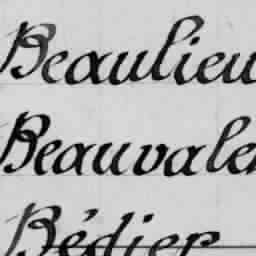 Beaulieu
Beauvale
Bédier